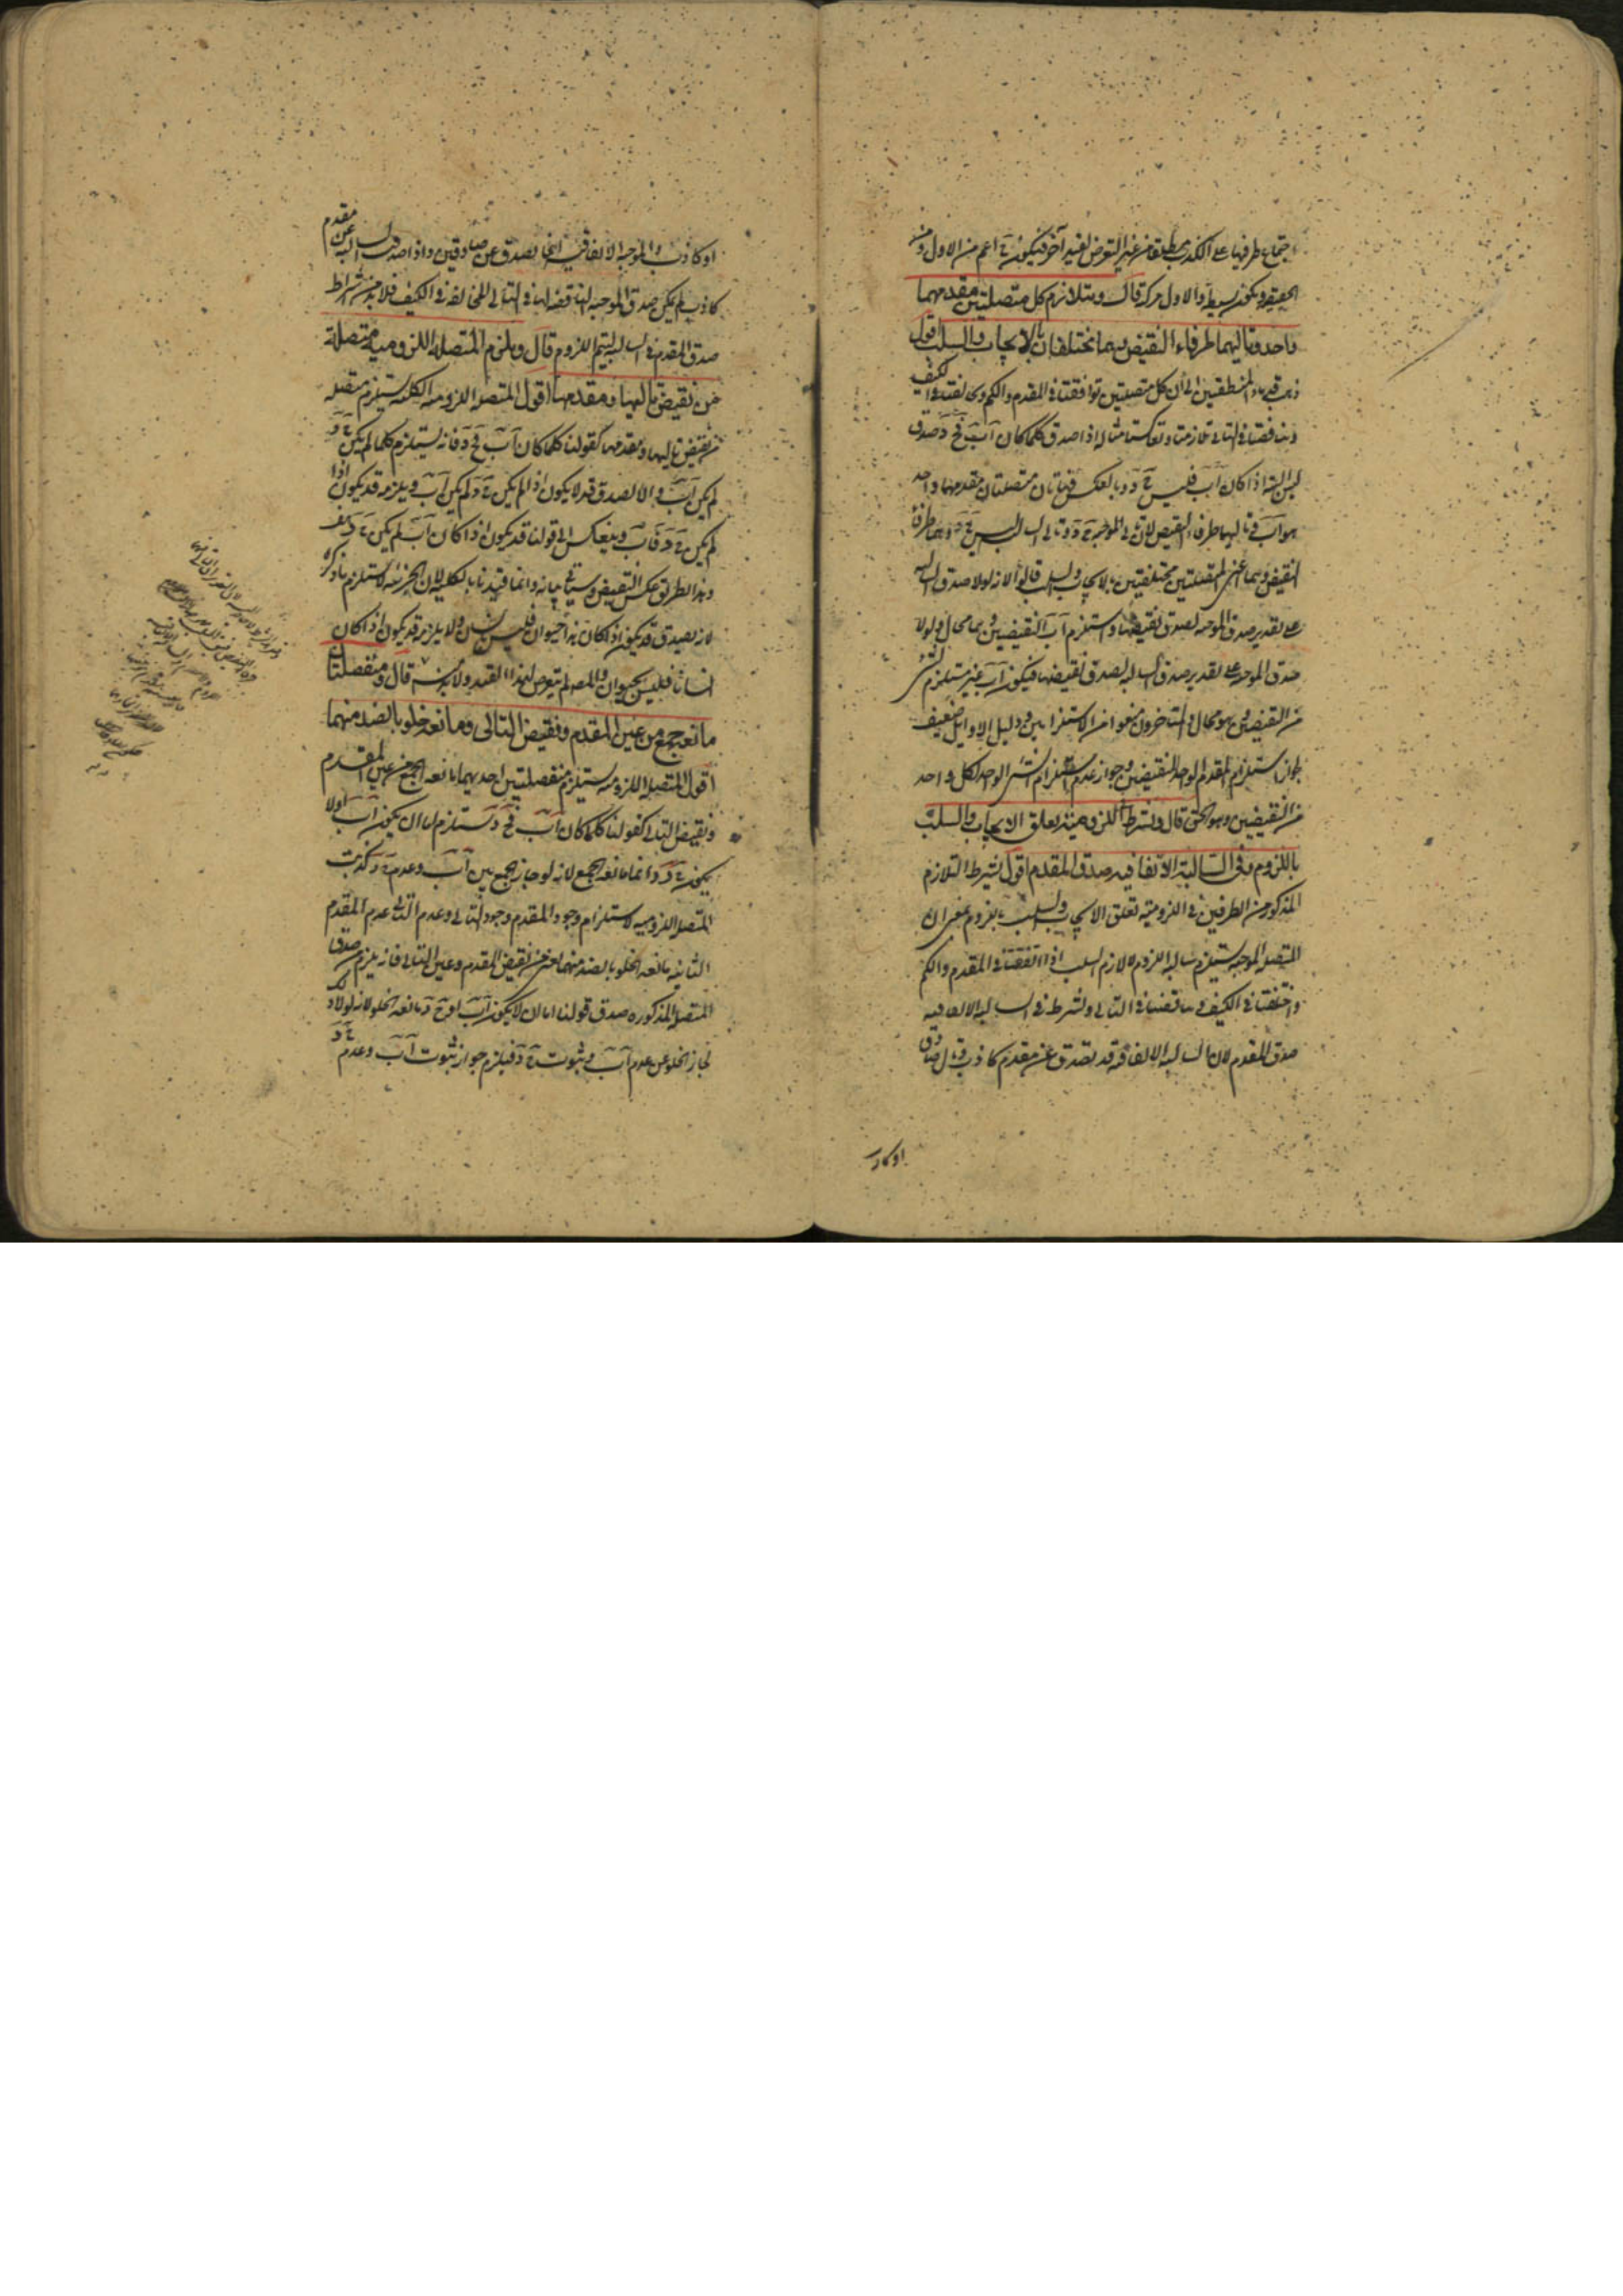 اجتماع طرفيها على الكذب مطلقا من غير التعرض لقيد آخر فيكون ح اعم من الاول ومن
الحقيقية ويكون بسيطة والاول مركبة قال ويتلازم كل متصلتين مقدمهما
واحد وتاليهما طرفاء النقيض وهما تختلفان بالايجاب والسلب اقول
ذهب قدماء المنطقيين الى ان كل متصلتين توافقتا في المقدم والكم وتخالفتا في الكيف
وتناقضتا في التالي تلازمتا وتعاكستا مثاله اذا صدق كلما كان آب فج د صدق
ليس البتة اذا كان آب فليس ج د وبالعكس فهاتان متصلتان مقدمهما واحد
هو آب وتاليهما طرفاء النقيض لان تالي الموجبة ج د وتالي السالبة ليس ج د وهما طرفا
النقيض وهما اعني المتصلتين مختلفتين بالايجاب والسلب قالوا لانه لولا صدق السالبة
على تقدير صدق الموجبة لصدق نقيضها واستلزم آب النقيضين وهما محال ولولا
صدق الموجبة على تقدير صدق السالبة لصدق نقيضها فيكون آب غير مستلزم لشئ
من النقيضين وهو محال والمتأخرون منعوا من الاستلزامين ودليل الاوايل ضعيف
لجواز استلزام المقدم الواحد للنقيضين وجواز عدم استلزام الشئ الواحد لكل واحد
من النقيضين وهو الحق قال ويشترط في اللزومية تعلق الايجاب والسلب
باللزوم وفي السالبة الاتفاقية صدق المقدم اقول يشترط التلازم
المذكور من الطرفين في اللزومية تعلق الايجاب والسلب باللزوم بمعنى ان
المتصلة الموجبة يستلزم سالبة اللزوم لا لازم السلب اذا اتفقتا في المقدم والكم
واختلفتا في الكيف وتناقضتا في التالي ويشترط في السالبة الاتفاقية
صدق المقدم لان السالبة الاتفاقية قد تصدق عن مقدم كاذب وتال صادق
اوكاذ
او كاذب والموجبة الاتفاقية انما تصدق عن صادقين واذا صدق السالبة عن مقدم
كاذب لم يكن صدق الموجبة المناقضة لها في التالي المخالفة في الكيف فلا بد من اشتراط
صدق المقدم في السالبة ليتم اللزوم قال ويلزم المتصلة اللزومية متصلة
من نقيض تاليها ومقدمها اقول المتصلة اللزومية الكلية يستلزم متصلة
من نقيض تاليها ومقدمها كقولنا كلما كان آب فج د فانه يستلزم كلما لم يكن ج د
لم يكن آب والا لصدق قد لا يكون اذا لم يكن ج د لم يكن آب ويلزمه قد يكون اذا
لم يكن ج د فآب وينعكس الى قولنا قد يكون اذا كان آب لم يكن ج د هف
وهذا الطريق عكس النقيض وسيأتي بيانه وانما قيدنا بالكلية لان الجزئية لا تستلزم ما ذكره
لانه يصدق قد يكون اذا كان هذا حيوان فليس بانسان ولا يلزمه قد يكون اذا كان
انسانا فليس بحيوان والمصنف لم يتعرض لهذا القيد ولا بد منه قال ومنفصلتان
مانعة جمع من عين المقدم ونقيض التالي ومانعة خلو بالضد منهما
اقول المتصلة اللزومية يستلزم منفصلتين احديهما مانعة الجمع من عين المقدم
ونقيض التالي كقولنا كلما كان آب فج د يستلزم اما ان يكون آب او لا
يكون ج د وانما مانعة الجمع لانه لو جاز الجمع بين آب وعدم ج د كذبت
المتصلة اللزومية لاستلزام وجود المقدم وجود التالي وعدم التالي عدم المقدم
الثانية مانعة الخلو بالضد منهما اعني من نقيض المقدم وعين التالي فانه يلزم من صدق
المتصلة المذكورة صدق قولنا اما ان لا يكون آب او ج د مانعة الخلو لانه لولا ذلك
لجاز الخلو عن عدم آب وثبوت ج د فيلزم جواز ثبوت آب وعدم ج د